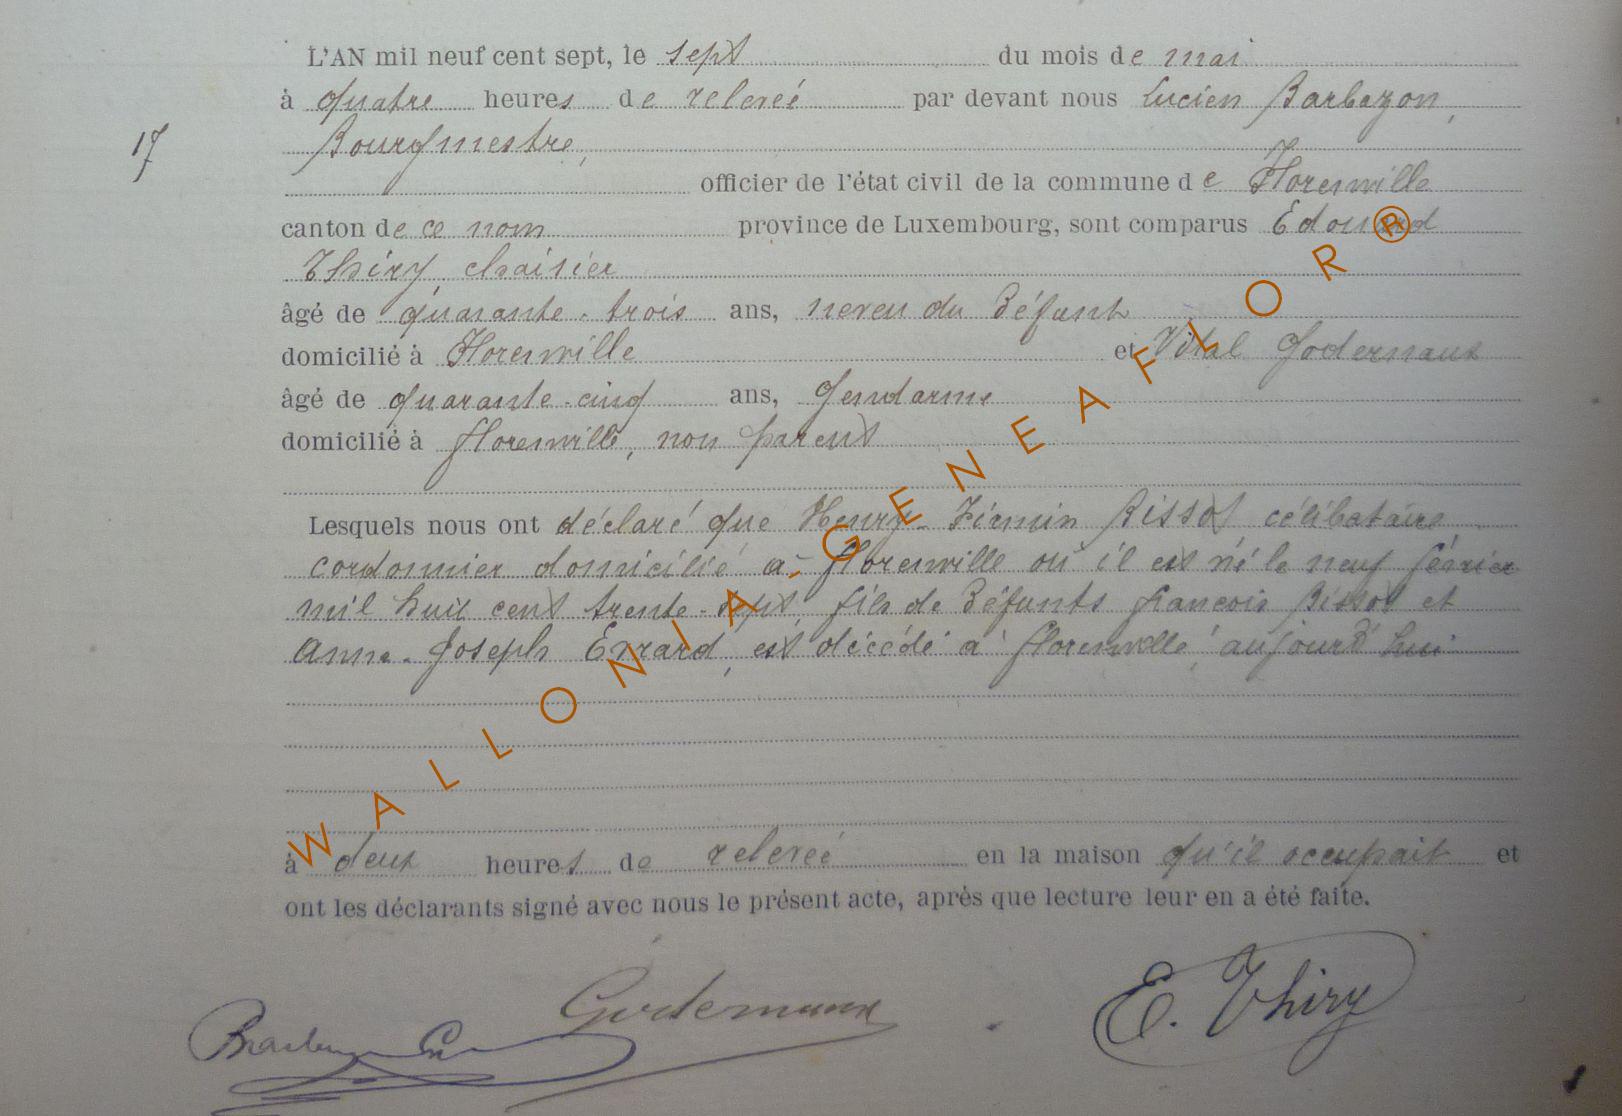 L'AN mil neuf cent sept, le sept du mois de mai
à quatre heures de releveé par devant nous Lucien Barbazon,
17 Bourgmestre,
officier de l'état civil de la commune de Florenville
canton de ce nom province de Luxembourg, sont comparus Edouard
Thiry, chaisier
âgé de quarante-trois ans, neveu du défunt
domicilié à Florenville et Vital Godernaux
âgé de quarante-cinq ans, Gendarme
domicilié à florenville, non parent
Lesquels nous ont déclaré que Henry-Firmin Bissot célibataire
cordonnier domicilié à florenville où il est né le neuf février
mil huit cent trente-sept, fils de défunts françois Bissot et
Anne-Joseph Evrard, est décédé à florenville, aujourd'hui
à deux heures de releveé en la maison qu'il occupait et
ont les déclarants signé avec nous le présent acte, après que lecture leur en a été faite.
Godernaux E. Thiry
WALLONIA-GENEAFLOR®